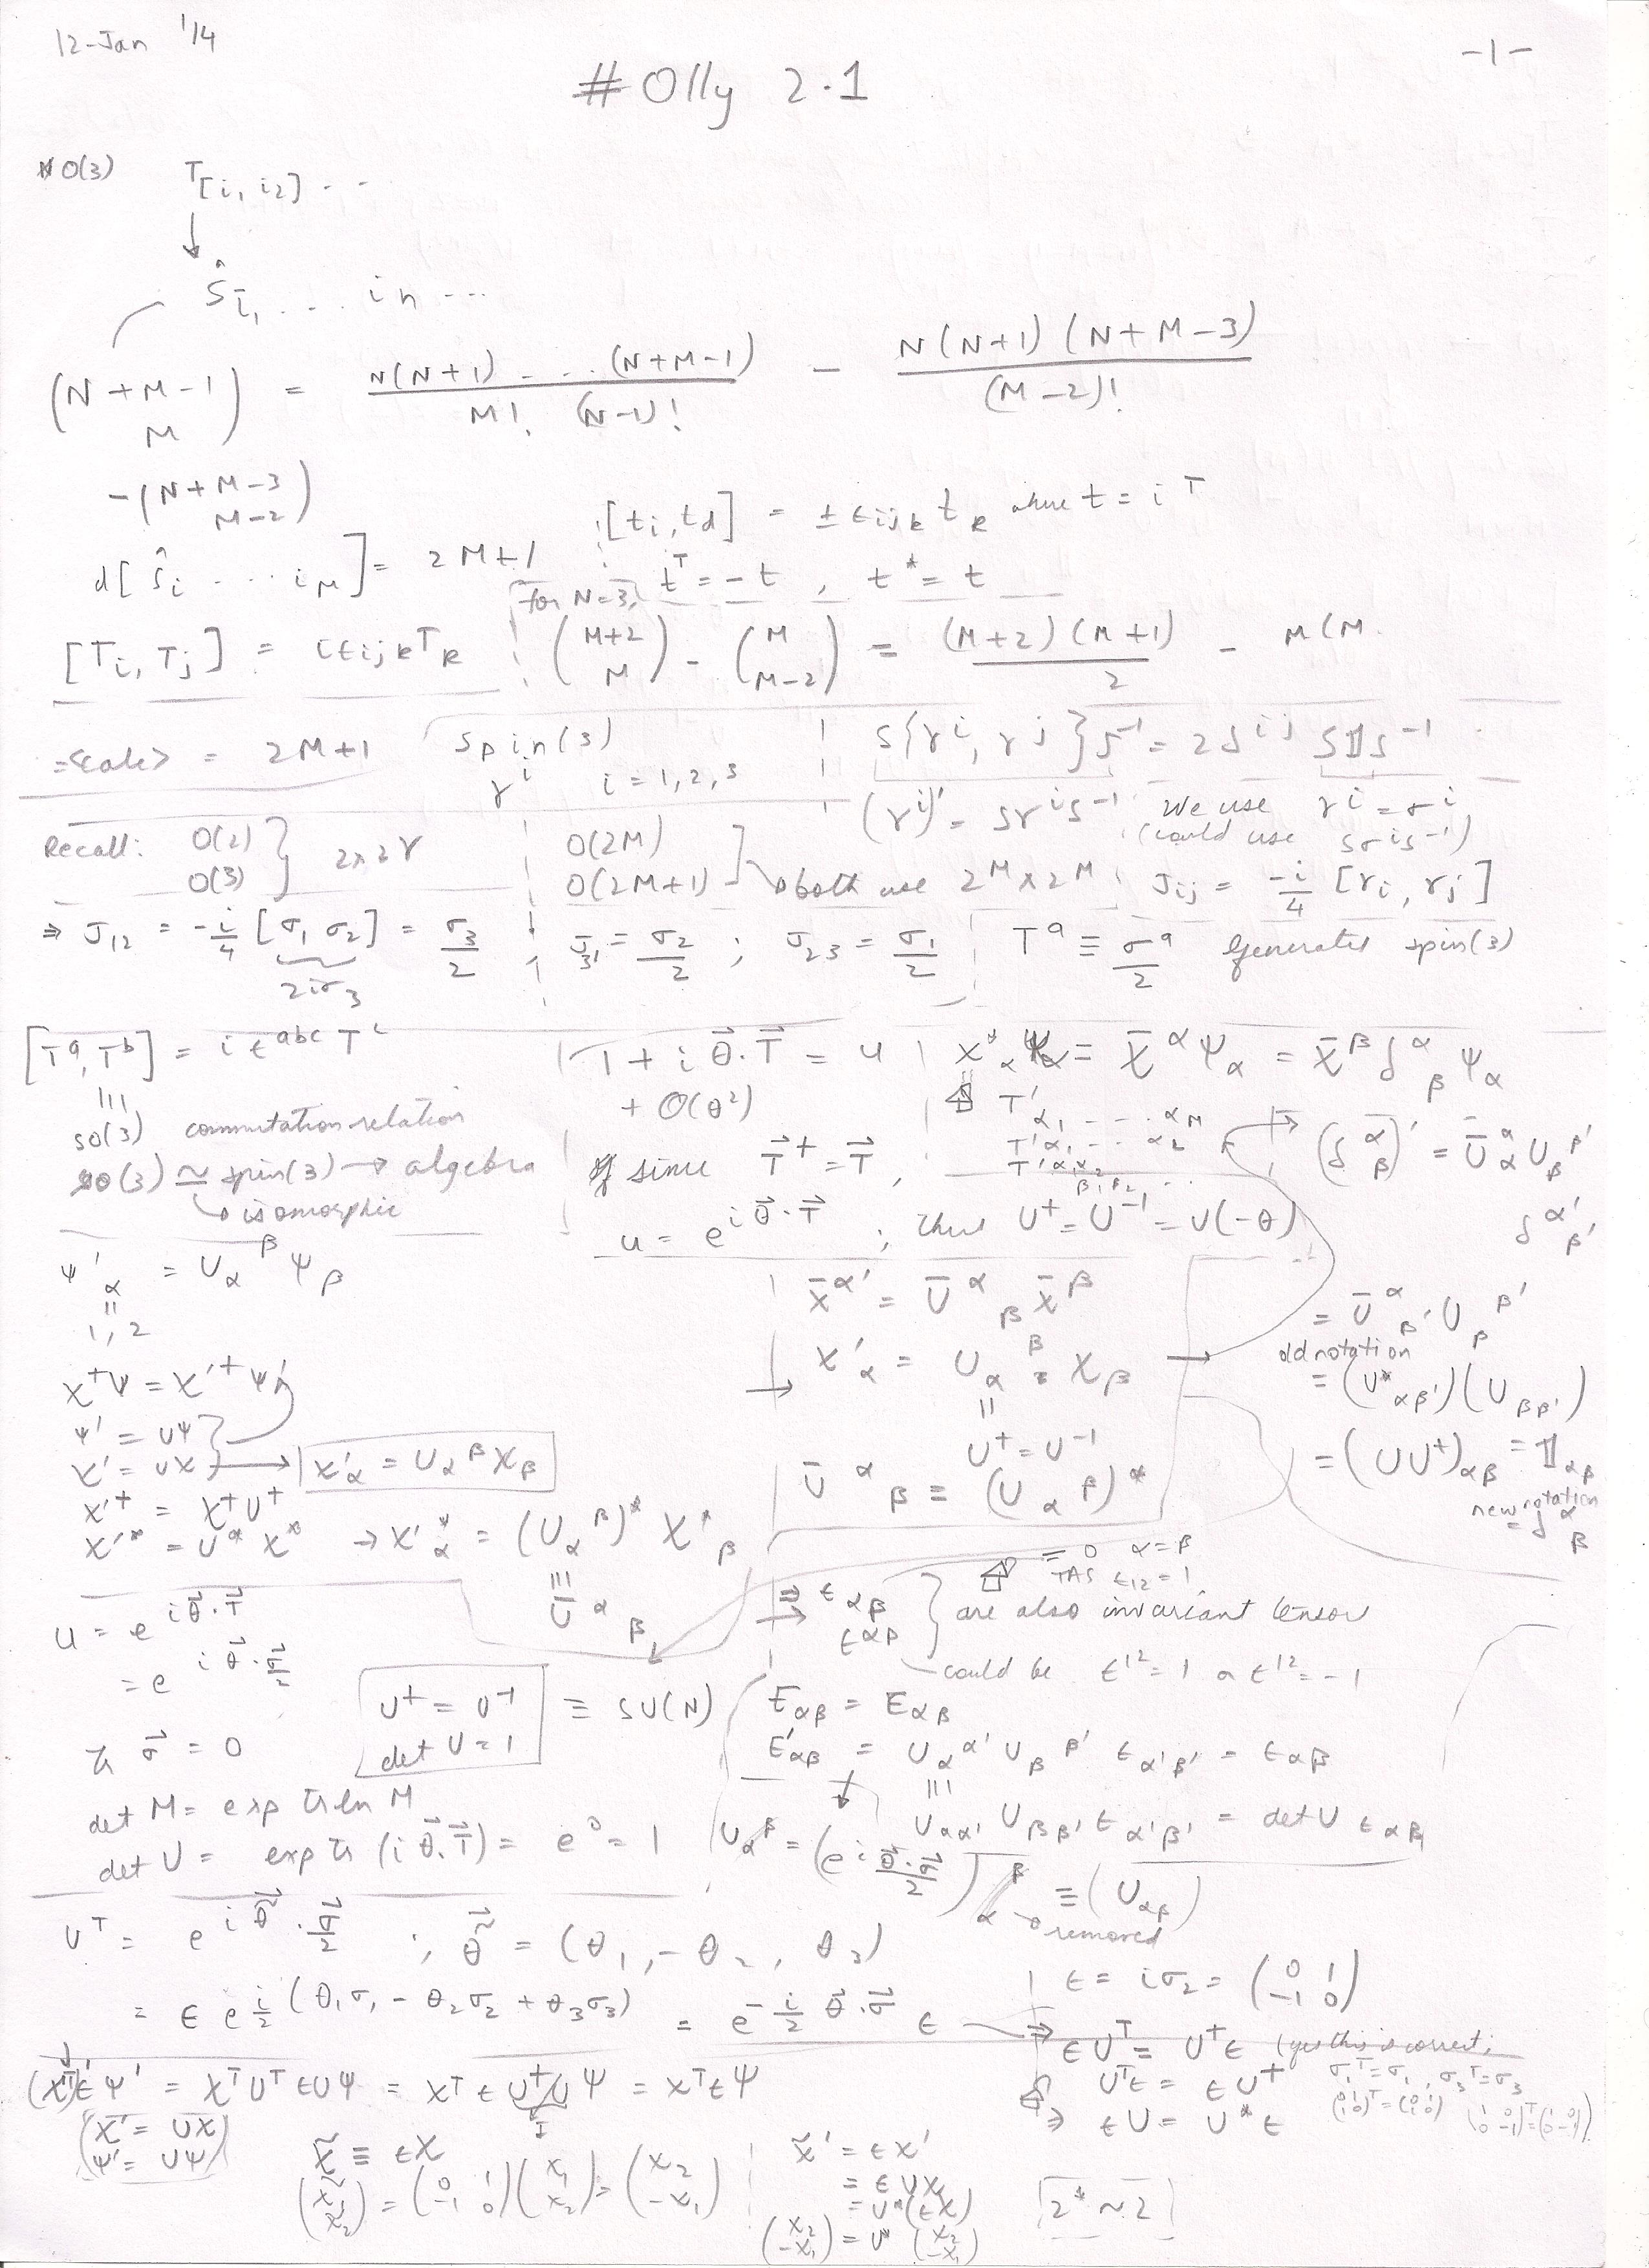 12-Jan '14
-1-
#Olly 2.1
O(3) T[i₁ i₂] - -
↓
Ŝ i₁ ... in ...
(N+M-1 M) = N(N+1) - ..(N+M-1) / M! (N-1)! - N(N+1)(N+M-3) / (M-2)!
-(N+M-3 M-2)
[ti, tj] = ± εijk tk where t = iT
d[Ŝi ... iM] = 2M+1
for N=3, tᵀ = -t , t* = t
[Ti, Tj] = iεijk Tk
(M+2 M) - (M M-2) = (M+2)(M+1) / 2 - M(M
= 2M+1
spin(3)
γⁱ i = 1,2,3
S{γⁱ, γʲ}S⁻¹ = 2δⁱʲ S𝟙S⁻¹
(γⁱ)' = SγⁱS⁻¹ We use γⁱ = σⁱ
(could use SσⁱS⁻¹)
Recall: O(2) O(3) } 2×2γ
O(2M) O(2M+1) ] → both use 2ᴹ×2ᴹ
Jij = -i/4 [γi, γj]
⇒ J₁₂ = -i/4 [σ₁ σ₂] = σ₃/2
2iσ₃
J₃₁ = σ₂/2 ; J₂₃ = σ₁/2
Tᵃ ≡ σᵃ/2 generates spin(3)
[Tᵃ, Tᵇ] = iεᵃᵇᶜ Tᶜ
so(3) commutation relation
so(3) ≃ spin(3) → algebra
↳ isomorphic
1 + i θ⃗·T⃗ = U
+ O(θ²)
since T⃗⁺ = T⃗ ,
U = e^{iθ⃗·T⃗} ; thus U⁺ = U⁻¹ = U(-θ)
χ*α ψα ≡ χ̄^α ψα = χ̄^β δ^α_β ψα
T'α₁ ... αM
(δ^α_β)' = Ū^α_α' U_β^β'
δ^α'_β'
= Ū^α_β' U_β^β'
old notation
= (U*αβ')(Uββ')
= (UU⁺)αβ = 𝟙αβ
new notation
= δ^α_β
ψ'α = Uα^β ψβ
1, 2
χ⁺ψ = χ'⁺ψ'
ψ' = Uψ
χ' = Uχ → χ'α = Uα^β χβ
χ'⁺ = χ⁺U⁺
χ'* = U* χ* → χ'*α = (Uα^β)* χ*β
Ū^α_β
χ̄^α' = Ū^α_β χ̄^β
→ χ'α = Uα^β χβ →
U⁺ = U⁻¹
Ū^α_β ≡ (Uα^β)*
= 0 α = β
TAS ε₁₂ = 1
⇒ εαβ
ε^αβ } are also invariant tensor
could be ε¹² = 1 or ε¹² = -1
U = e^{iθ⃗·T⃗}
= e^{iθ⃗·σ⃗/2}
tr σ⃗ = 0
U⁺ = U⁻¹
det U = 1 ≡ SU(N)
det M = exp tr ln M
det U = exp tr (iθ⃗·T⃗) = e⁰ = 1
εαβ = εαβ
ε'αβ = Uα^α' Uβ^β' εα'β' = εαβ
Uαα' Uββ' εα'β' = det U εαβ
Uα^β = (e^{iθ⃗·σ⃗/2})α^β ≡ (Uαβ)
α → removed
Uᵀ = e^{iθ̃⃗·σ⃗/2} ; θ̃⃗ = (θ₁, -θ₂, θ₃)
= ε e^{i/2 (θ₁σ₁ - θ₂σ₂ + θ₃σ₃)} = e^{-i/2 θ⃗·σ⃗} ε
ε = iσ₂ = (0 1 -1 0)
⇒ εUᵀ = U⁺ε (yes this is correct;
Uᵀε = εU⁺ σ₁ᵀ = σ₁ , σ₃ᵀ = σ₃
⇒ εU = U*ε (0 1 1 0)ᵀ = (0 1 1 0) (1 0 0 -1)ᵀ = (1 0 0 -1)
(χᵀ)'εψ' = χᵀUᵀεUψ = χᵀεU⁺Uψ = χᵀεψ
I
(χ' = Uχ
ψ' = Uψ)
χ̃ ≡ εχ
(χ̃₁ χ̃₂) = (0 1 -1 0)(χ₁ χ₂) = (χ₂ -χ₁)
χ̃' = εχ'
= εUχ
= U*(εχ)
(χ₂ -χ₁) = U* (χ₂ -χ₁)
2* ~ 2